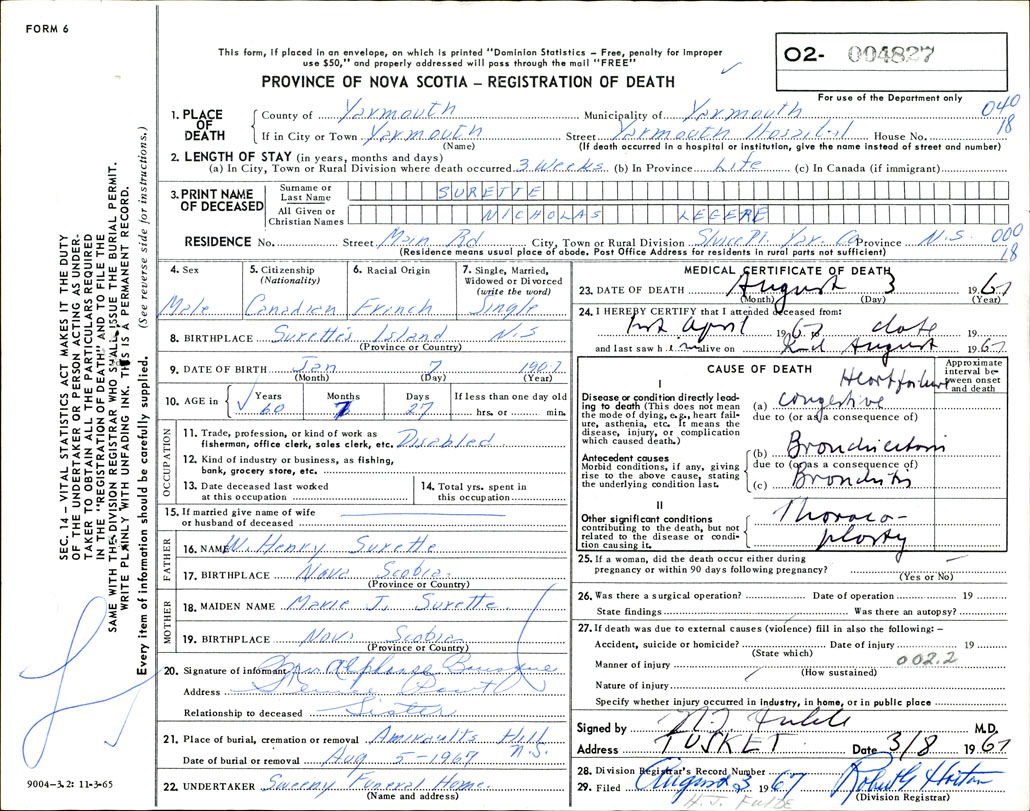 FORM 6
This form, if placed in an envelope, on which is printed "Dominion Statistics – Free, penalty for improper
use $50," and properly addressed will pass through the mail "FREE"
PROVINCE OF NOVA SCOTIA – REGISTRATION OF DEATH
02- 004827
For use of the Department only
040
18
1. PLACE OF DEATH
County of Yarmouth Municipality of Yarmouth
If in City or Town Yarmouth Street Yarmouth Hospital House No.
(Name) (If death occurred in a hospital or institution, give the name instead of street and number)
2. LENGTH OF STAY (in years, months and days)
(a) In City, Town or Rural Division where death occurred 3 Weeks (b) In Province Life (c) In Canada (if immigrant)
3. PRINT NAME OF DECEASED
Surname or Last Name SURETTE
All Given or Christian Names NICHOLAS LEGERE
RESIDENCE No. Street Main Rd City, Town or Rural Division Sluice Pt. Yar. Co Province N.S. 000
18
(Residence means usual place of abode. Post Office Address for residents in rural parts not sufficient)
4. Sex 5. Citizenship (Nationality) 6. Racial Origin 7. Single, Married, Widowed or Divorced (write the word)
Male Canadian French Single
8. BIRTHPLACE Surette's Island N.S
(Province or Country)
9. DATE OF BIRTH Jan 7 1907
(Month) (Day) (Year)
10. AGE in Years Months Days If less than one day old
60 27 hrs. or min.
OCCUPATION
11. Trade, profession, or kind of work as fisherman, office clerk, sales clerk, etc. Disabled
12. Kind of industry or business, as fishing, bank, grocery store, etc.
13. Date deceased last worked at this occupation
14. Total yrs. spent in this occupation
15. If married give name of wife or husband of deceased
FATHER
16. NAME W. Henry Surette
17. BIRTHPLACE Nova Scotia
(Province or Country)
MOTHER
18. MAIDEN NAME Marie J. Surette
19. BIRTHPLACE Nova Scotia
(Province or Country)
20. Signature of informant Mrs Alphonse
Address
Relationship to deceased Sister
21. Place of burial, cremation or removal Amiraults Hill N.S.
Date of burial or removal Aug 5-1967
22. UNDERTAKER Sweeny Funeral Home.
(Name and address)
MEDICAL CERTIFICATE OF DEATH
23. DATE OF DEATH August 3 1967
(Month) (Day) (Year)
24. I HEREBY CERTIFY that I attended deceased from:
1st April 1967 to date 19
and last saw him alive on 2nd August 1967
CAUSE OF DEATH
Approximate interval between onset and death
I
Disease or condition directly leading to death (This does not mean the mode of dying, e.g., heart failure, asthenia, etc. It means the disease, injury, or complication which caused death.)
Heart failure
(a) congestive
due to (or as a consequence of)
Antecedent causes
Morbid conditions, if any, giving rise to the above cause, stating the underlying condition last.
(b)
due to (or as a consequence of)
(c) Bronchitis
II
Other significant conditions contributing to the death, but not related to the disease or condition causing it.
Thoraco-
plasty
25. If a woman, did the death occur either during
pregnancy or within 90 days following pregnancy? –
(Yes or No)
26. Was there a surgical operation? Date of operation 19
State findings Was there an autopsy?
27. If death was due to external causes (violence) fill in also the following: –
Accident, suicide or homicide? Date of injury 19
(State which)
002.2
Manner of injury
(How sustained)
Nature of injury
Specify whether injury occurred in industry, in home, or in public place
Signed by M.D.
Address TUSKET Date 3/8 1967
28. Division Registrar's Record Number
29. Filed August 3 1967
(Division Registrar)
SEC. 14 – VITAL STATISTICS ACT MAKES IT THE DUTY
OF THE UNDERTAKER OR PERSON ACTING AS UNDER-
TAKER TO OBTAIN ALL THE PARTICULARS REQUIRED
IN THE "REGISTRATION OF DEATH" AND TO FILE THE
SAME WITH THE DIVISION REGISTRAR WHO SHALL ISSUE THE BURIAL PERMIT.
WRITE PLAINLY WITH UNFADING INK. THIS IS A PERMANENT RECORD.
Every item of information should be carefully supplied. (See reverse side for instructions.)
9004-3.2: 11-3-65